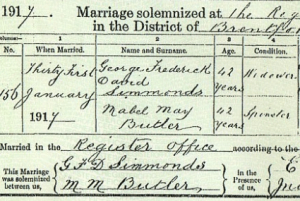 1917. Marriage solemnized at the Reg
in the District of Brentfo
Columns:— 1 2 3 4 5
No. When Married. Name and Surname. Age. Condition.
156 Thirty First January 1917 George Frederick David Simmonds 42 years Widower
Mabel May Butler 42 years Spinster
Married in the Register Office according to the
This Marriage was solemnized between us, G F D Simmonds
M M Butler
in the Presence of us,